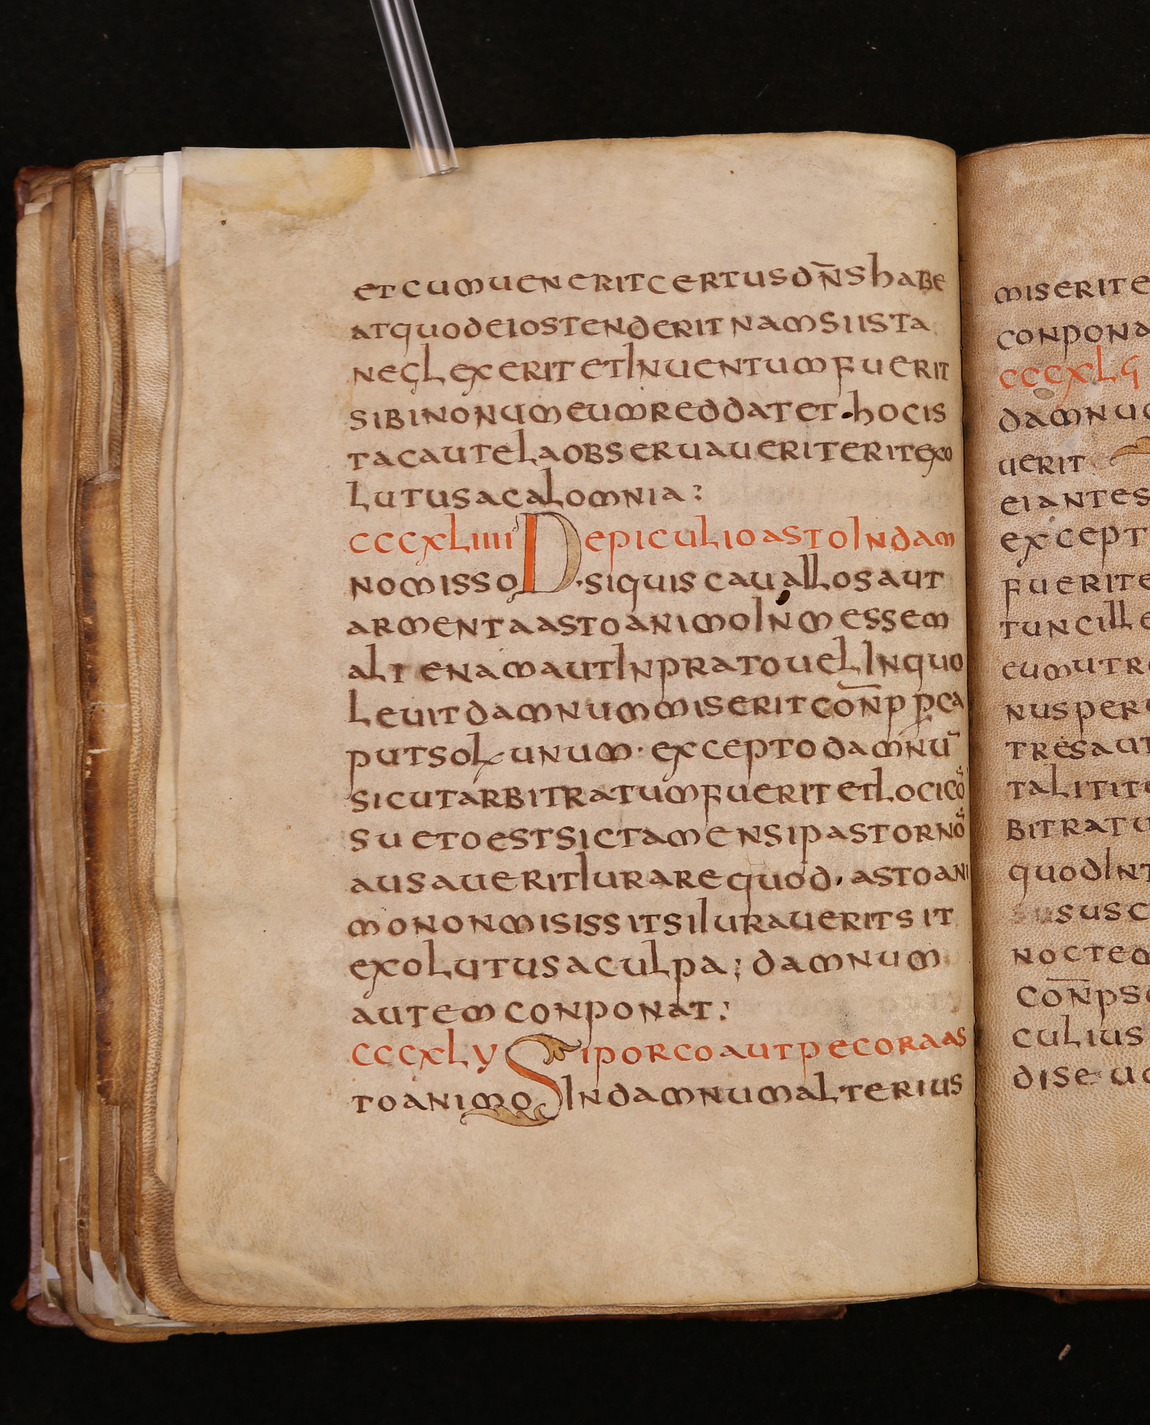 etcumueneritcertusdn̄shabe
atquodeiostenderitnamsiista
neglexeritetinuentumfuerit
sibinonumeumreddatet·hocis
tacautelaobseruaueriteritexo
lutusacalomnia:
cccxliiii Depiculioastoindam
nomisso·siquiscauallosaut
armentaastoanimoinmessem
alienamautinpratouelinquo
leuitdamnummiseritcon̄ppca
putsol unum·exceptodamnū
sicutarbitratumfueritetlocicō
suetoestsictamensipastornō
ausaueritiurarequod·astoani
mononmisissitsiiuraueritsit
exolutusaculpa;damnum
autemconponat:
cccxlv Siporcoautpecoraas
toanimoindamnumalterius
miserite
conpona
cccxlɕ
damnu
uerit
eiantes
except
fuerite
tuncille
eumutr
nusper
tresaut
talitit
bitratu
quodint
susc
nocte
con̄ps
culius
dise